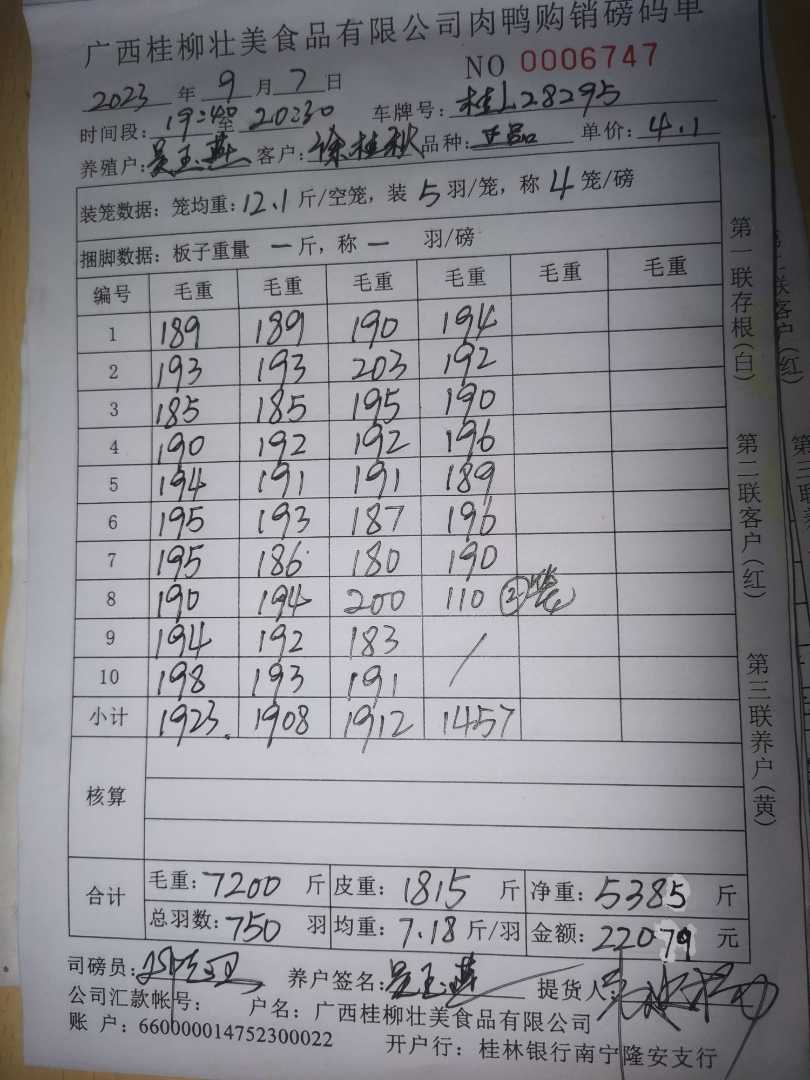 广西桂柳壮美食品有限公司肉鸭购销磅码单
NO 0006747
2023 年 9 月 7 日
时间段: 19:40 至 20:30 车牌号: 桂L28295
养殖户: 吴玉燕 客户: 徐桂秋 品种: 正品 单价: 4.1
装笼数据: 笼均重: 12.1 斤/空笼, 装 5 羽/笼, 称 4 笼/磅
捆脚数据: 板子重量 一 斤, 称 一 羽/磅
编号 毛重 毛重 毛重 毛重 毛重 毛重
1 189 189 190 194
2 193 193 203 192
3 185 185 195 190
4 190 192 192 196
5 194 191 191 189
6 195 193 187 196
7 195 186 180 190
8 190 194 200 110 ②笼
9 194 192 183 /
10 198 193 191
小计 1923. 1908 1912 1457
核算
合计 毛重: 7200 斤 皮重: 1815 斤 净重: 5385 斤
总羽数: 750 羽 均重: 7.18 斤/羽 金额: 22079 元
司磅员: 养户签名: 吴玉燕 提货人:
公司汇款帐号: 户名: 广西桂柳壮美食品有限公司
账 户: 660000014752300022 开户行: 桂林银行南宁隆安支行
第一联存根(白)
第二联客户(红)
第三联养户(黄)